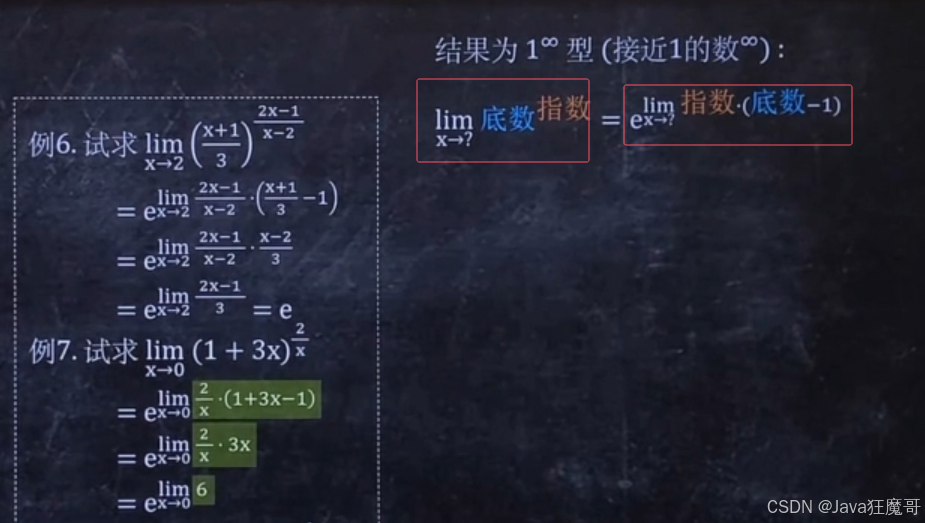 结果为 1^∞ 型 (接近1的数^∞) :
lim x→? 底数^指数 = e^(lim x→? 指数·(底数−1))
例6. 试求 lim x→2 ((x+1)/3)^((2x−1)/(x−2))
= e^(lim x→2 (2x−1)/(x−2)·((x+1)/3−1))
= e^(lim x→2 (2x−1)/(x−2)·(x−2)/3)
= e^(lim x→2 (2x−1)/3) = e
例7. 试求 lim x→0 (1 + 3x)^(2/x)
= e^(lim x→0 2/x·(1+3x−1))
= e^(lim x→0 2/x·3x)
= e^(lim x→0 6)
CSDN @Java狂魔哥